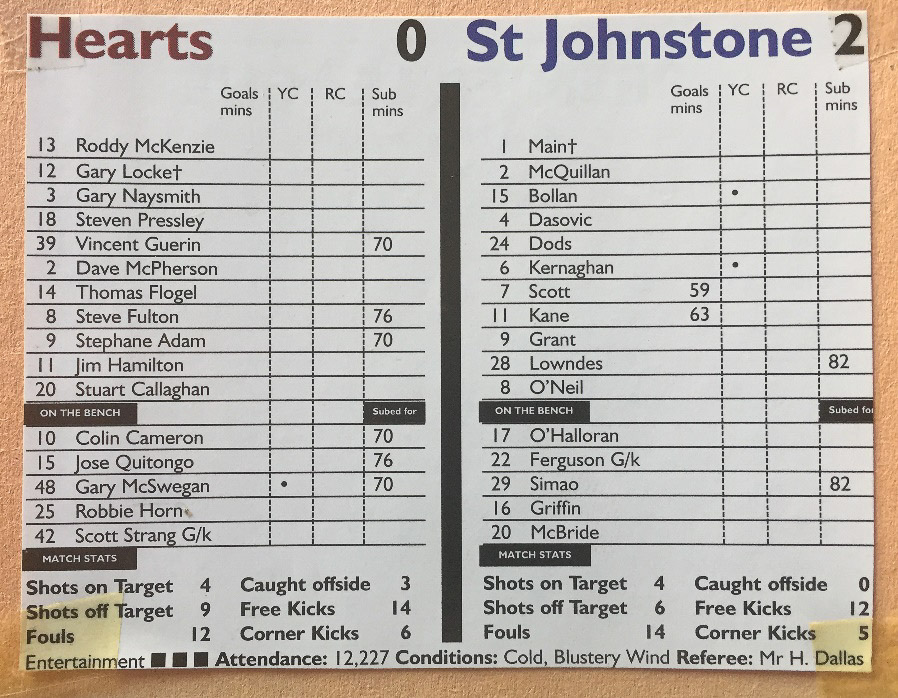 Hearts 0
Goals mins YC RC Sub mins
13 Roddy McKenzie
12 Gary Locke†
3 Gary Naysmith
18 Steven Pressley
39 Vincent Guerin 70
2 Dave McPherson
14 Thomas Flogel
8 Steve Fulton 76
9 Stephane Adam 70
11 Jim Hamilton
20 Stuart Callaghan
ON THE BENCH Subed for
10 Colin Cameron 70
15 Jose Quitongo 76
48 Gary McSwegan • 70
25 Robbie Horn
42 Scott Strang G/k
MATCH STATS
Shots on Target 4 Caught offside 3
Shots off Target 9 Free Kicks 14
Fouls 12 Corner Kicks 6
St Johnstone 2
Goals mins YC RC Sub mins
1 Main†
2 McQuillan
15 Bollan •
4 Dasovic
24 Dods
6 Kernaghan •
7 Scott 59
11 Kane 63
9 Grant
28 Lowndes 82
8 O'Neil
ON THE BENCH Subed for
17 O'Halloran
22 Ferguson G/k
29 Simao 82
16 Griffin
20 McBride
MATCH STATS
Shots on Target 4 Caught offside 0
Shots off Target 6 Free Kicks 12
Fouls 14 Corner Kicks 5
Entertainment ■ ■ ■ Attendance: 12,227 Conditions: Cold, Blustery Wind Referee: Mr H. Dallas